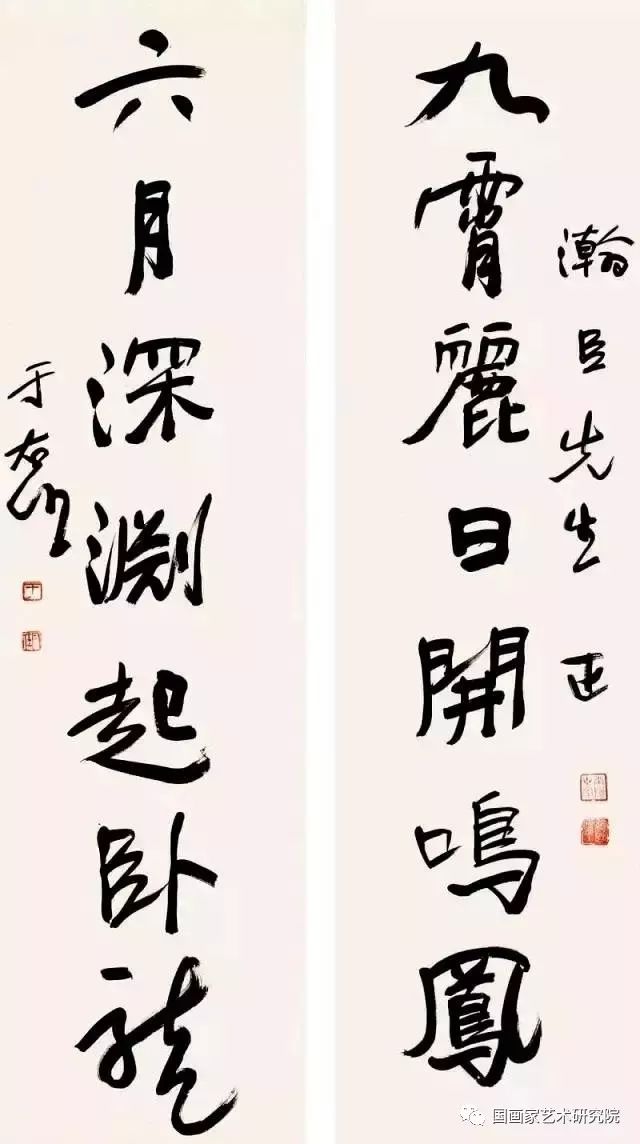 瀚臣先生正
九霄麗日開鳴鳳
六月深淵起卧龍
于右任
国画家艺术研究院